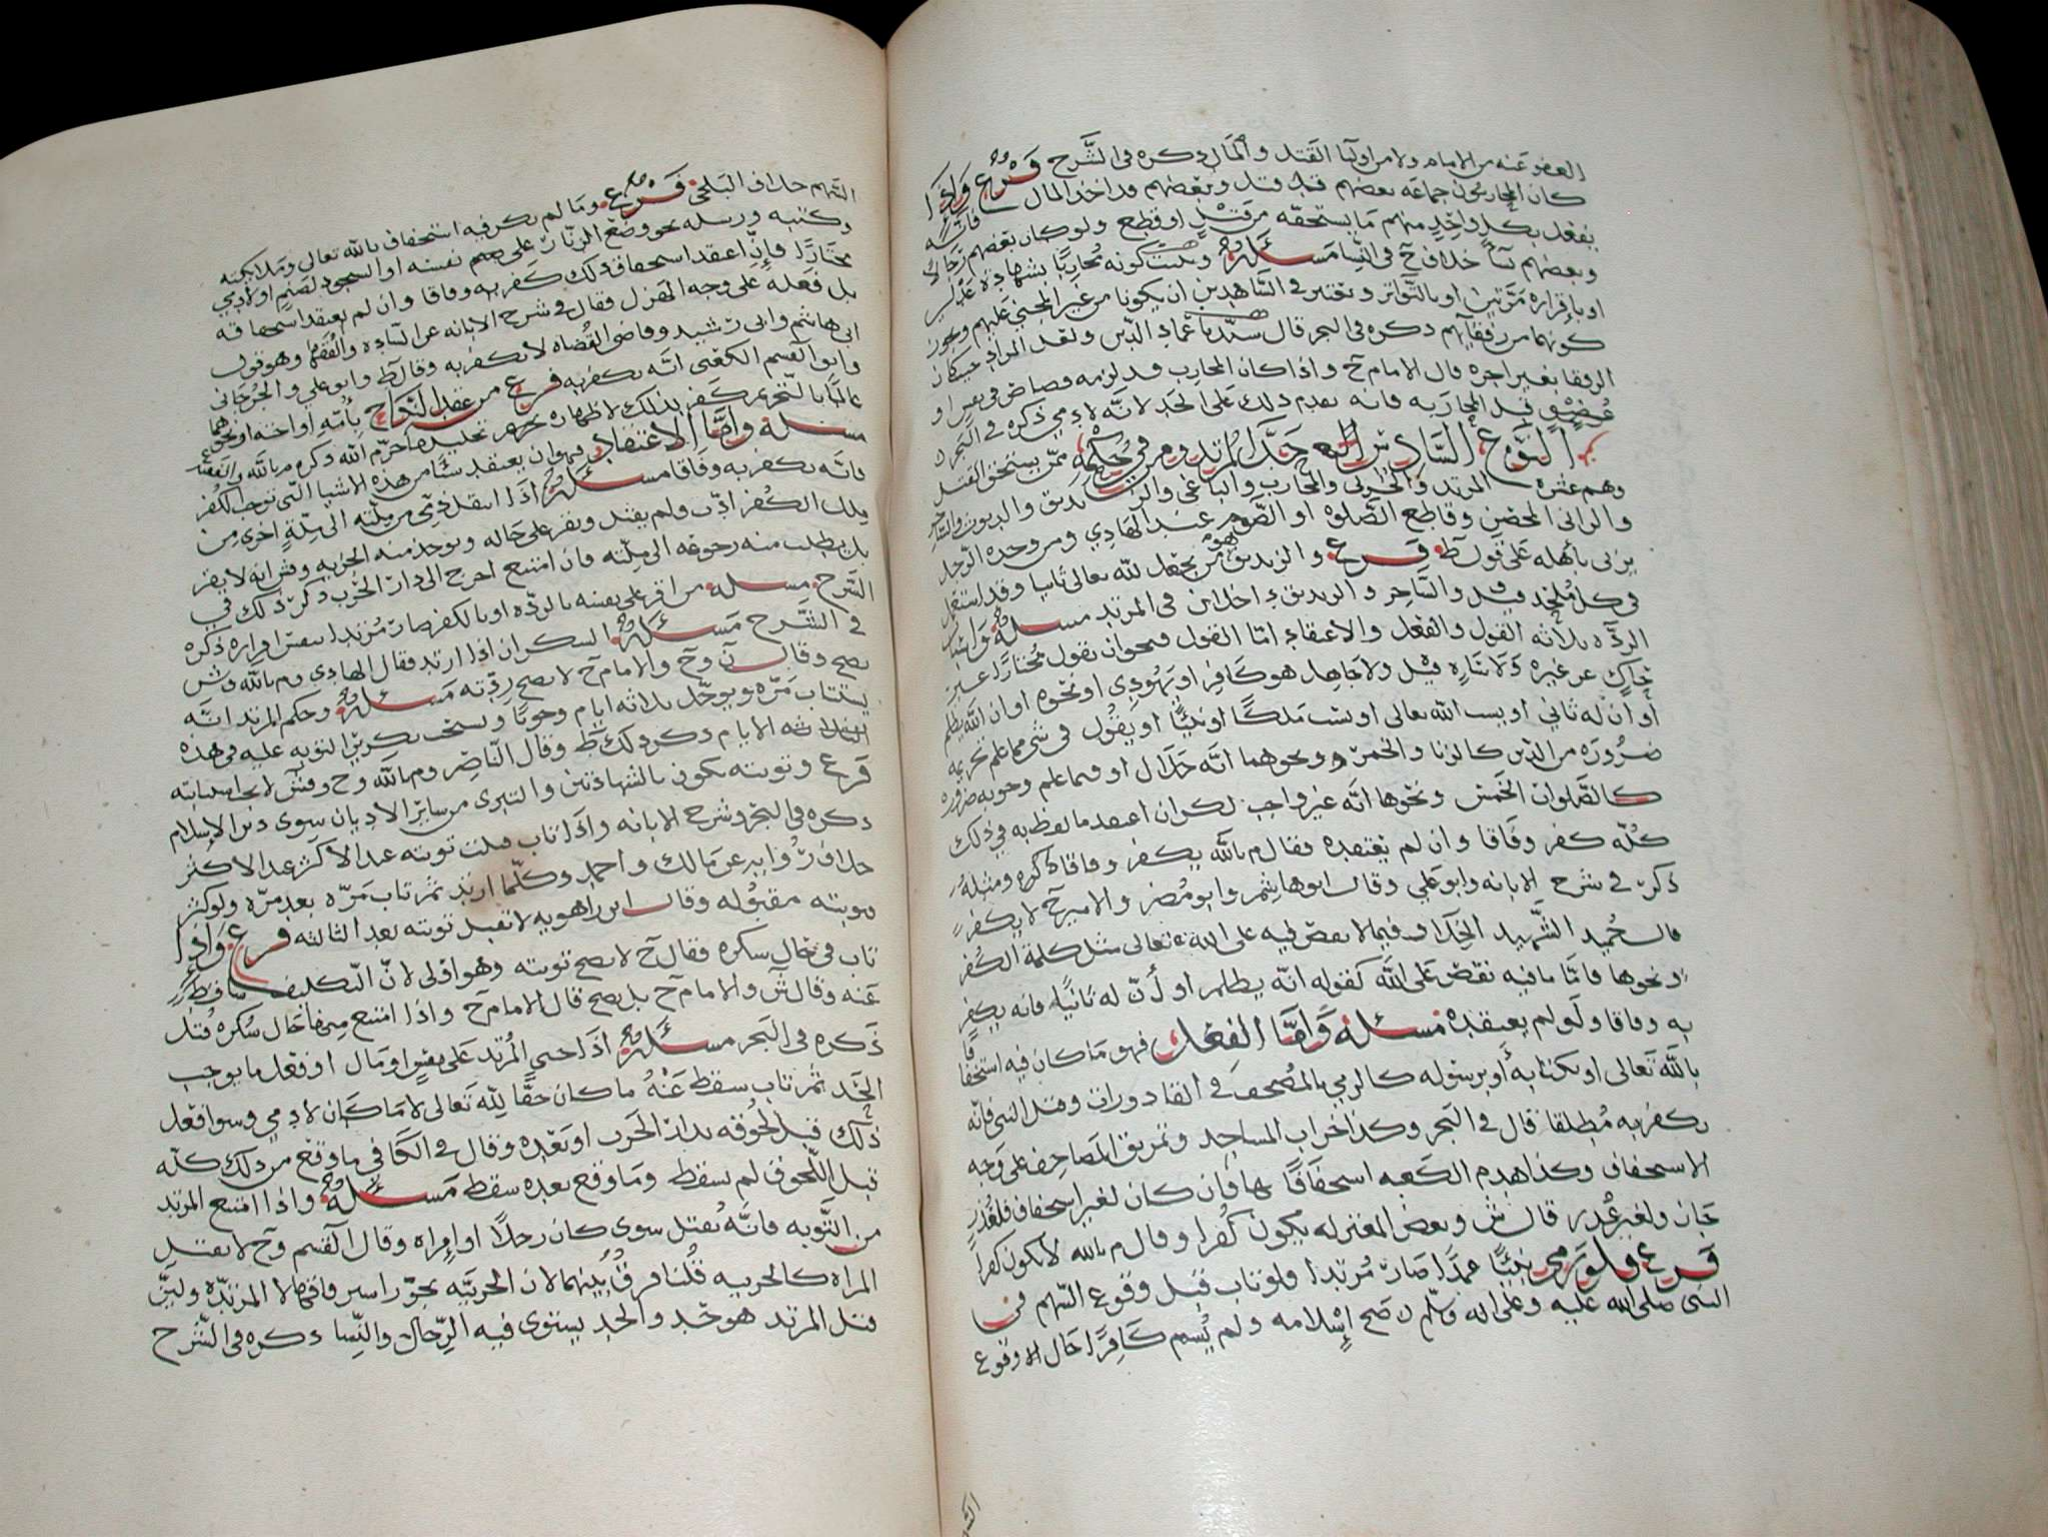 العفو عنه من الامام ولا من اوليا القتل والمال ذكره في الشرح فرع واذا
كان المحاربون جماعه بعضهم قد قتل وبعضهم قد اخذ المال فانه
يفعل بكل واحد منهم ما يستحقه من قتل او قطع ولو كان بعضهم رجالا
وبعضهم نسآ خلاف ح في النسا مسئلة ويثبت كونه محاربا بشهادة عدلين
او باقراره مرتين او بالتواتر ويعتبر في الشاهدين ان يكونا من غير المجني عليهم ويجوز
كونهما من رفقايهم ذكره في البحر قال سيدنا عماد الدين ولعل المراد حيث كان
الرفقا بغير اجره قال الامام ح واذا كان المحارب قد لزمه قصاص في نفس او
عضو قبل المحاربه فانه يقدم ذلك على الحد لانه لادمي ذكره في البحر
النوع السادس حد المرتد ومن في حكمه ممن يستحق القتل
وهم عشره المرتد والحربي والمحارب والباغي والزنديق والديوث والساحر
والزاني المحصن وقاطع الصلوه او الصوم عند الهادي ومن وجده الرجل
يزني باهله على قول ط فرع والزنديق هو من يجعل لله تعالى ثانيا وقد استعمل
في كل ملحد قيل والساحر والزنديق داخلان في المرتد مسئلة واسباب
الردّه ثلاثه القول والفعل والاعتقاد اما القول فهو ان يقول مختارا غير
حاكٍ عن غيره ولا تاره قيل ولا جاهل هو كافر او يهودي او نحوه او ان الله يظلم
او ان له ثاني او يسب الله تعالى او يسب ملكًا او نبيًا او يقول في شي مما علم تحريمه
ضروره من الدين كالزنا والخمر ونحوهما انه حلال او فيما علم وجوبه ضروره
كالصلوات الخمس ونحوها انه غير واجب لكن ان اعتقد ما لفظ به في ذلك
كله كفر وفاقا وان لم يعتقده فقال م بالله يكفر وفاقا ذكره ومثله
ذكر في شرح الابانه وابو علي وقال ابو هاشم وابو مضر والامير ح لا يكفر
قال حميد الشهيد الخلاف فيما لا نقص فيه على الله تعالى مثل كلمة الكفر
ونحوها فاما ما فيه نقص على الله كقوله انه يظلم او أن له ثانيا فانه يكفر
به وفاقا ولو لم يعتقده مسئلة واما الفعل فهو ما كان فيه استخفافا
بالله تعالى او بكتابه أو برسوله كالرمي بالمصحف في القاذورات وقتل النبي فانه
يكفر به مطلقا قال في البحر وكذا اخراب المساجد وتمزيق المصاحف على وجه
الاستخفاف وكذا هدم الكعبه استخفافًا بها فان كان لغير استخفاف فلعذر
جاز ولغير عذر قال ش وبعض المعتزله يكون كفرا وقال م بالله لا يكون كفرا
فرع فلو رمى نبيًا عمدًا صار مرتدا فلو تاب قبل وقوع السهم في
النبي صلى الله عليه وعلى اله وسلم صح إسلامه ولم يسم كافرًا حال الوقوع
السهم خلاف البلخي فرع وما لم يكن فيه استخفاف بالله تعالى وملايكته
وكتبه ورسله نحو وضع الزنار على نفسه او السجود لصنم او لادمي
مختارا فإن اعتقد استحقاق ذلك كفر به وفاقا وان لم يعتقد استحقاقه
بل فعله على وجه الهزل فقال في شرح الابانه عن الساده والفقها وهو قول
ابي هاشم وابي رشيد وقاضي القضاه لا يكفر به وقال ط وابو علي والجرجاني
وابو القسم الكعبي انه يكفر به فرع من عقد النكاح بأمه او اخته او نحوهما
عالما بالتحريم كفر بذلك لاظهاره تحليل ما حرم الله ذكره م بالله والفقيه ع
مسئلة وامّا الاعتقاد فهو ان يعتقد شئا من هذه الاشيا التي توجب الكفر
فانه يكفر به وفاقا مسئلة اذا انتقل ذمي من ملته الى ملةٍ اخرى من
ملل الكفر ادب ولم يقتل ويقر على حاله وتوخذ منه الجزيه وقيل انه لا يقر
بل يطلب منه رجوعه الى ملته فان امتنع اخرج الى دار الحرب ذكر ذلك في
الشرح مسئله من اقر على نفسه بالردّه او بالكفر صار مرتدا بنفس اقراره ذكره
في الشرح مسئلة السكران اذا ارتد فقال الهادي وم بالله وش
يصح وقال ن وح والامام ح لا يصح ردّته مسئلة وحكم المرتد انه
يستتاب مرّه ويوجّل ثلاثه ايام وجوبًا ويستحب تكرير التوبه عليه في هذه
الثلاثه الايام ذكر ذلك ط وقال الناصر وم بالله وح وش لا يجب استتابته
فرع وتوبته يكون بالشهادتين والتبري من ساير الاديان سوى دين الاسلام
ذكره في البحر وشرح الابانه واذا تاب قبلت توبته عند الاكثر
خلاف روايه عن مالك واحمد وكلّما ارتد ثم تاب مرّه بعد مرّه ولو كثر
فتوبته مقبوله وقال ابن راهويه لا تقبل توبته بعد الثالثه فرع واذا
تاب في حال سكره فقال ح لا يصح توبته وهو اولى لانّ التكليف ساقط
عنه وقال ش والامام ح بل يصح قال الامام ح واذا امتنع منها حال سكره قتل
ذكره في البحر مسئلة اذا جنى المرتد على نفسٍ او مال او فعل ما يوجب
الحد ثم تاب سقط عنه ما كان حقًا لله تعالى لا ما كان لادمي وسوا فعل
ذلك قبل لحوقه بدار الحرب او بعده وقال في الكافي ما وقع من ذلك كله
قبل اللحوق لم يسقط وما وقع بعده سقط مسئلة واذا امتنع المرتد
من التّوبه فانّه يقتل سوى كان رجلًا او إمراه وقال القسم وح لا يقتل
المراه كالحربيه قلنا فرق بينهما لان الحربيّه يجوز اسرقاقها لا المرتدّه وليس
قتل المرتد هو حد والحد يستوي فيه الرجال والنسا ذكره في الشرح